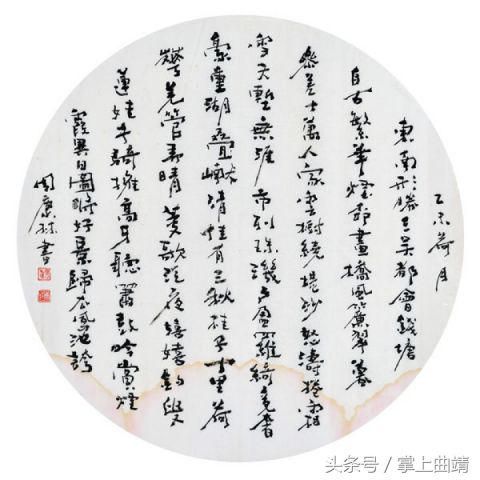 乙未荷月
東南形勝三吴都會錢塘
自古繁華煙柳畫橋風簾翠幕
參差十萬人家雲樹繞堤沙怒濤捲霜
雪天塹無涯市列珠璣户盈羅綺竞奢
豪重湖叠巘清佳有三秋桂子十里荷
華羌管弄晴菱歌泛夜嬉嬉釣叟
蓮娃千騎擁高牙聽簫鼓吟賞煙
霞異日圖將好景歸去鳳池誇
書
头条号/掌上曲靖